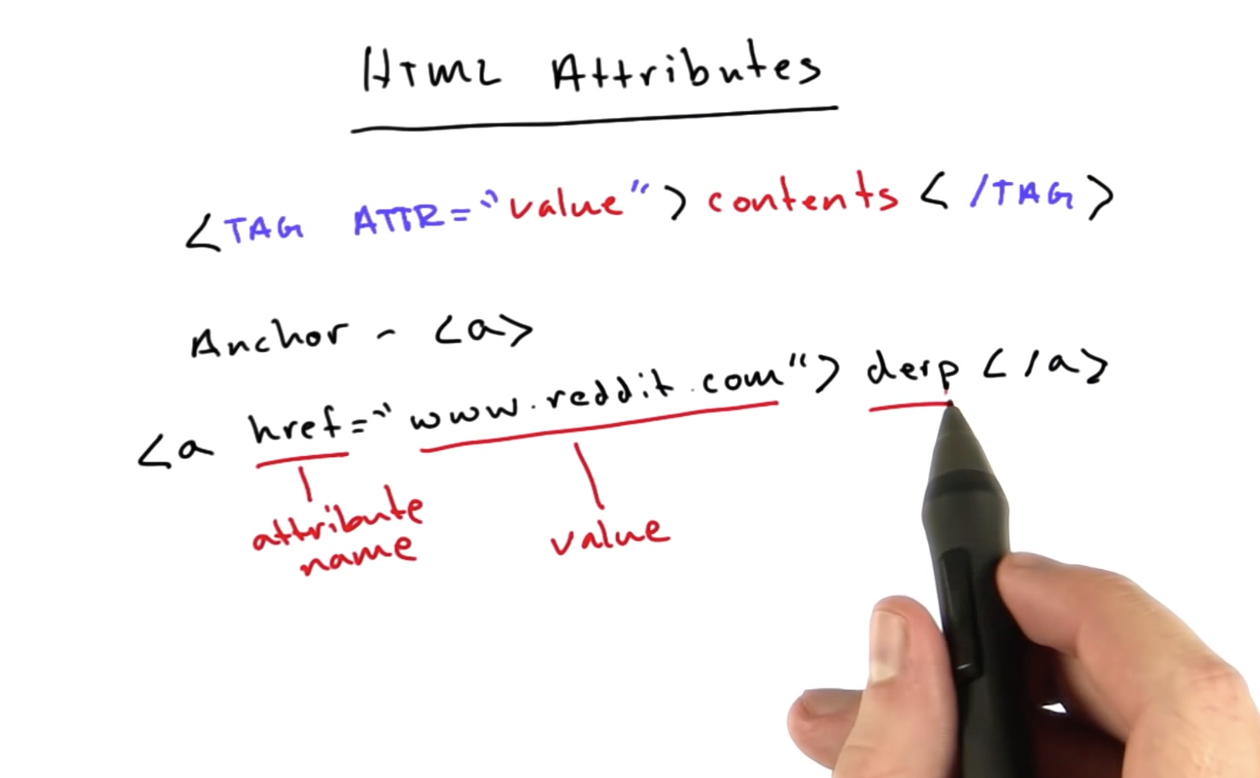 HTML Attributes
<TAG ATTR="value">contents</TAG>
Anchor - <a>
<a href="www.reddit.com">derp</a>
attribute
name
value